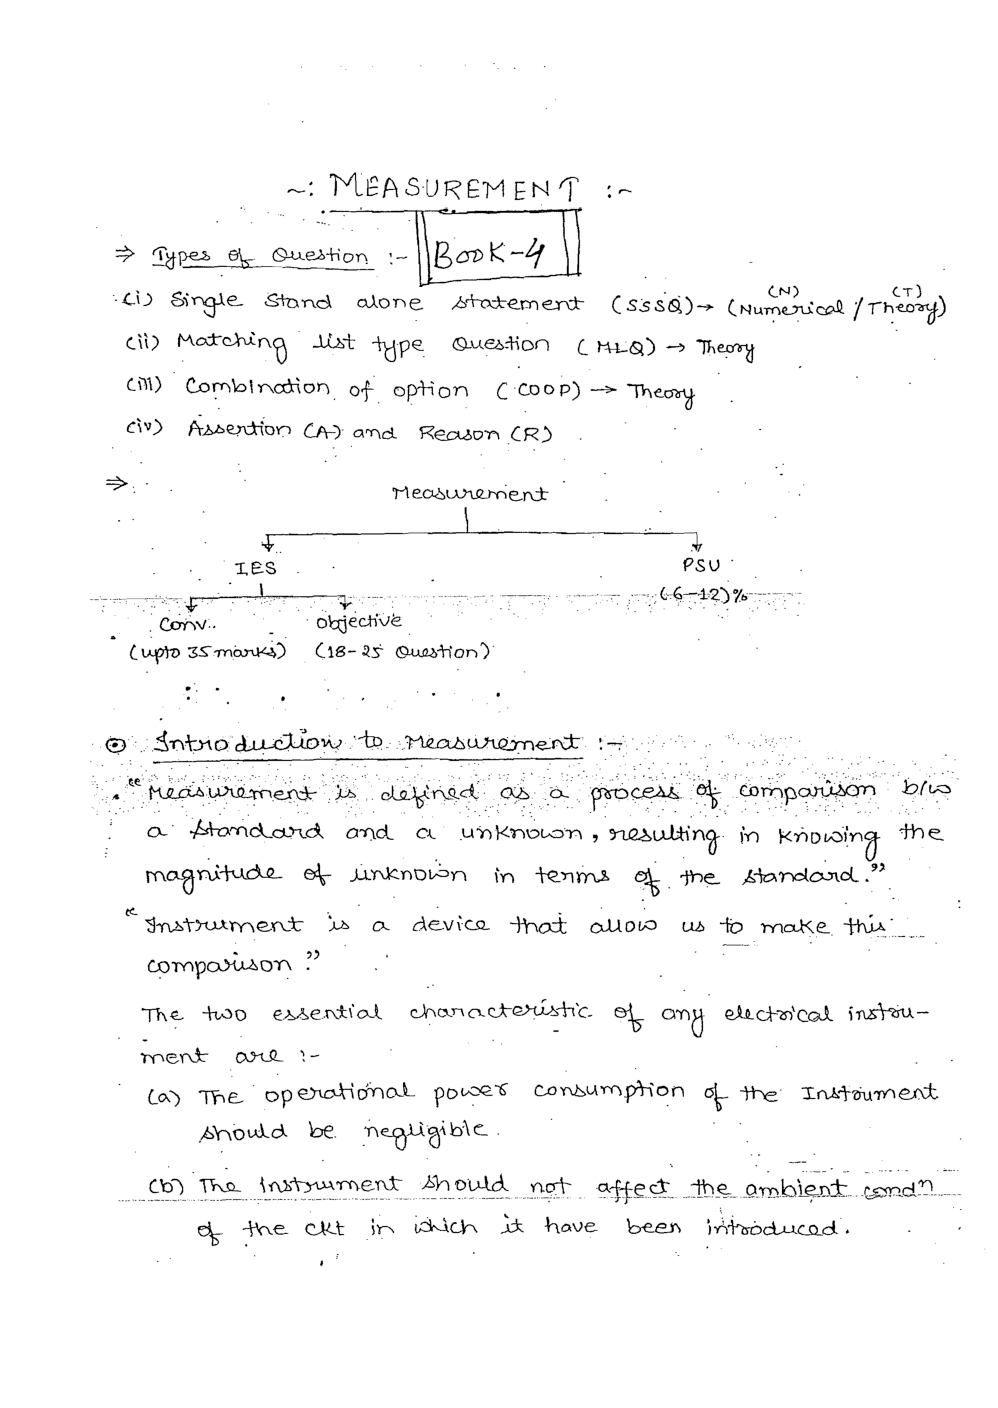 ~: MEASUREMENT :~
BOOK-4
⇒ Types of Question :-
(i) Single Stand alone statement (SSSQ)→ (Numerical / Theory)
(N) (T)
(ii) Matching list type Question (MLQ) → Theory
(iii) Combination of option (COOP) → Theory
(iv) Assertion (A) and Reason (R)
⇒
Measurement
IES PSU
(6-12)%
Conv. objective
(upto 35 marks) (18-25 Question)
⊙ Introduction to Measurement :-
"Measurement is defined as a process of comparison b/w
a standard and a unknown, resulting in knowing the
magnitude of unknown in terms of the standard."
"Instrument is a device that allow us to make this
comparison."
The two essential characteristic of any electrical instru-
ment are :-
(a) The operational power consumption of the Instrument
should be negligible.
(b) The instrument should not affect the ambient condn
of the ckt in which it have been introduced.